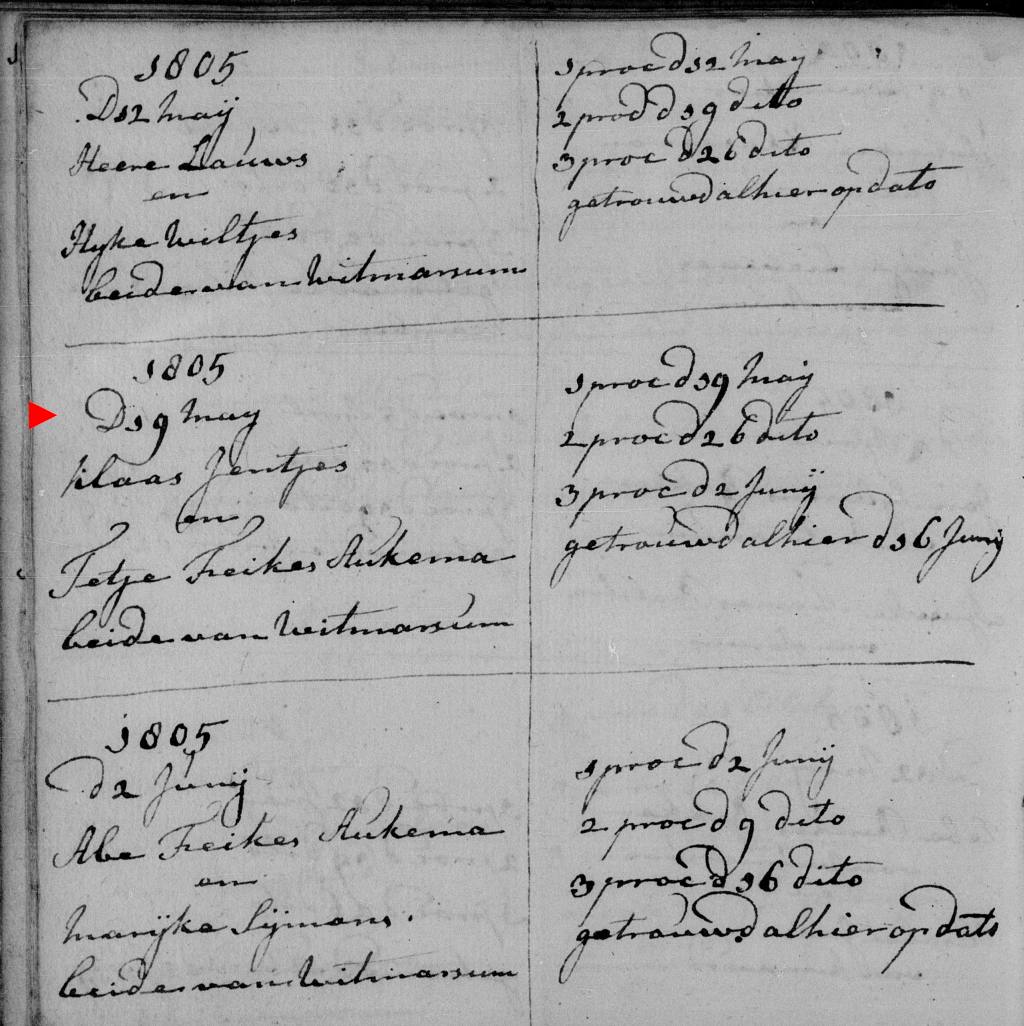 1805
D 12 maij
Heere Lauws
en
Hyke Wiltjes
beide van Witmarsum
1 proc d 12 may
2 procd d 19 dito
3 proc d 26 dito
getrouwd alhier op dato
1805
D 19 may
Klaas Jentjes
en
Tetje Freikes Aukema
beide van Witmarsum
1 proc d 19 maij
2 proc d 26 dito
3 proc d 2 Junij
getrouwd alhier d 16 Junij
1805
d 2 Junij
Abe Freikes Aukema
en
Marijke Sijmons.
beide van Witmarsum
1 proc d 2 Junij
2 proc d 9 dito
3 proc d 16 dito
getrouwd alhier op dato